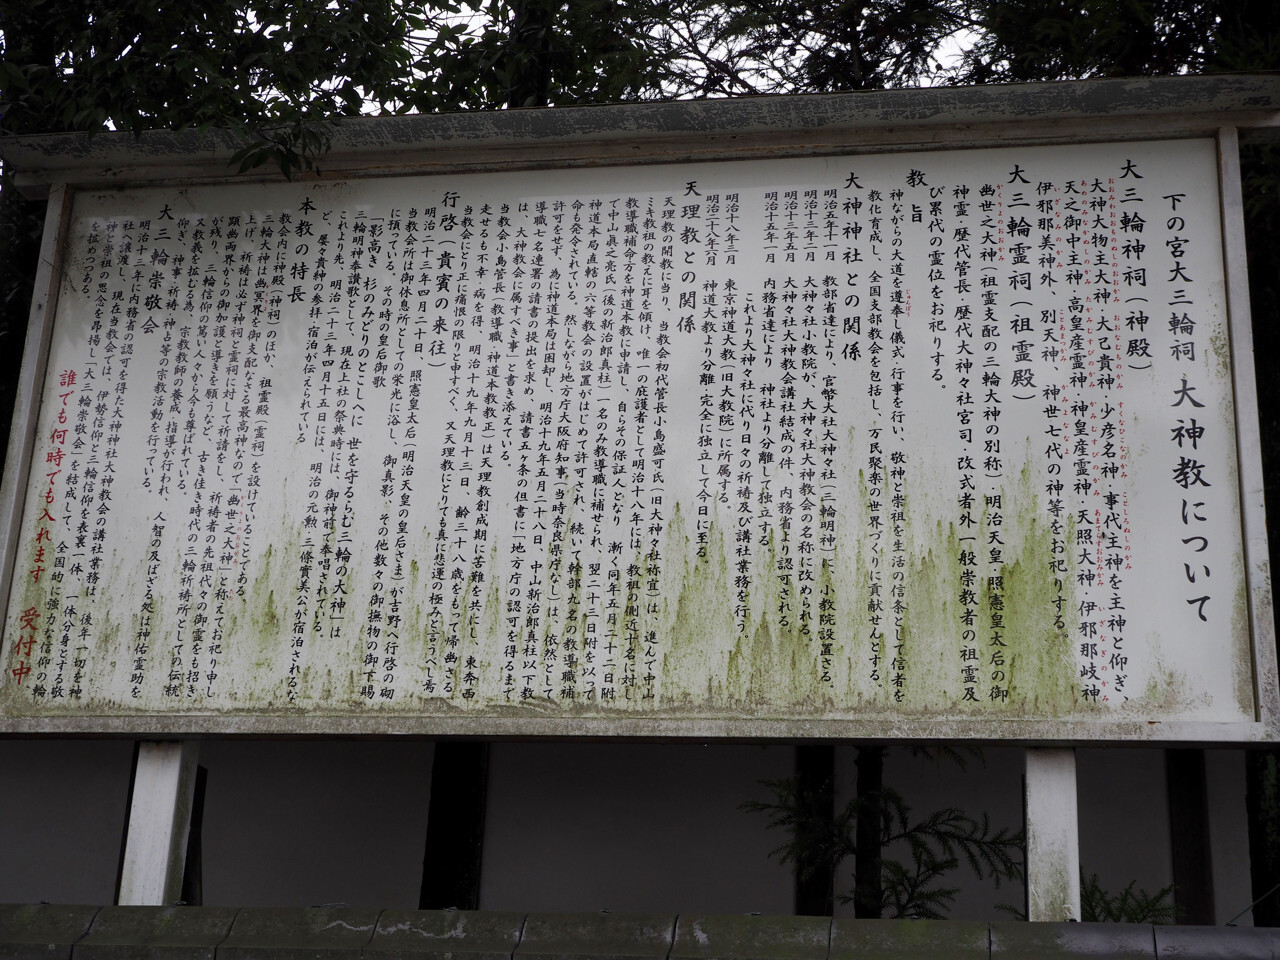 下の宮大三輪祠 大神教について
大三輪神祠（神殿）
大神大物主大神・大己貴神・少彦名神・事代主神を主神と仰ぎ、
天之御中主神・高皇産霊神・神皇産霊神・天照大神・伊邪那岐神
伊邪那美神外、別天神、神世七代の神等をお祀りする。
大三輪霊祠（祖霊殿）
幽世之大神（祖霊支配の三輪大神の別称）明治天皇・照憲皇太后の御
神霊・歴代管長・歴代大神々社宮司・改式者外一般崇教者の祖霊及
び累代の霊位をお祀りする。
教旨
神ながらの大道を遵奉し儀式・行事を行い、敬神と崇祖を生活の信条として信者を
教化育成し、全国支部教会を包括し、万民聚楽の世界づくりに貢献せんとする。
大神神社との関係
明治五年十一月 教部省達により、官幣大社大神々社（三輪明神）に、小教院設置さる。
明治十三年二月 大神々社小教院が、大神々社大神教会の名称に改められる。
明治十五年四月 大神々社大神教会講社結成の件、内務省より認可される。
明治十五年一月 内務省達により 神社より分離して独立する
これより大神々社に代り日々の祈祷及び講社業務を行う。
明治十八年三月 東京神道大教（旧大教院）に所属する。
明治二十八年六月 神道大教より分離完全に独立して今日に至る。
天理教との関係
天理教の開教に当り、当教会初代管長小島盛可氏（旧大神々社祢宜）は、進んで中山
ミキ教祖の教えに耳を傾け、唯一の庇護者として明治十八年には、教祖の側近十名に対し
教導職補命方を神道本教に申請し、自らその保証人となり 漸く同年五月二十二日附
で中山眞之亮氏（後の新治郎真柱）一名のみ教導職に補せられ、翌二十三日附を以って
神道本局直轄の六等教会の設置がはじめて許可され、続いて幹部九名の教導職補
命も発令されている。然しながら地方庁大阪府知事（当時奈良県庁なし）は、依然として
許可をせず、為に神道本局は困却し、明治十九年五月二十八日、中山新治郎真柱以下教
導職七名連署の請書の提出を求め、請書五ヶ条の但書に「地方庁の認可を得るまで
は、大神教会に属すべき事」と書き添えている。
当教会小島管長（教導職、神道本教教正）は天理教創成期に苦難を共にし、東奔西
走なるも不幸 病を得、明治十九年九月十三日、齢三十八歳をもって帰幽さる
当教会にとり正に痛恨の限りと申すべく、又天理教にとりても真に悲運の極みと言うべし焉
行啓（貴賓の来往）
明治二十三年四月二十日、照憲皇太后（明治天皇の皇后さま）が吉野へ行啓の砌
当教会所は御休息所としての栄光に浴し、御真影、その他数々の御撫物の御下賜
に預っている。その時の皇后御歌
「影高き 杉のみどりのとことしへに 世を守るらむ三輪の大神」は
三輪明神奉讃歌として、現在上社の祭典時には、御神前で奉唱されている。
これより先、明治二十三年四月十五日には、明治の元勲 三條實美公が宿泊されるな
ど、屡々貴紳の参拝・宿泊が伝えられている
本教の特長
教会内に神殿（神祠）のほか、祖霊殿（霊祠）を設けていることである。
三輪大神は幽冥界を御支配なさる最高神なので「幽世之大神」と称えてお祀り申し
上げ、祈祷は必ず神祠と霊祠に対して祈請をし、祈祷者の先祖代々の御霊をも招き
顕幽両界からの御加護と導きを願うなど、古き佳き時代の三輪祈祷所としての伝統
が残り、三輪信仰の篤い人々から今も尊ばれている。
又教義を拡むる為、宗教教師の養成、指導が行われ、人智の及ばざる処は神佑霊助を
仰ぎ、神事・祈祷・神占等の宗教活動を行っている。
大三輪崇敬会
明治十三年に内務省の認可を得た大神神社大神教会の講社業務は、後年一切を神
社に譲渡し、現在当教会では、伊勢信仰と三輪信仰を表裏一体、一体分身とする敬
神と崇祖の思念を昂揚し「大三輪崇敬会」を結成して、全国的に強力な信仰の輪
を拡めつつある。
誰でも何時でも入れます 受付中